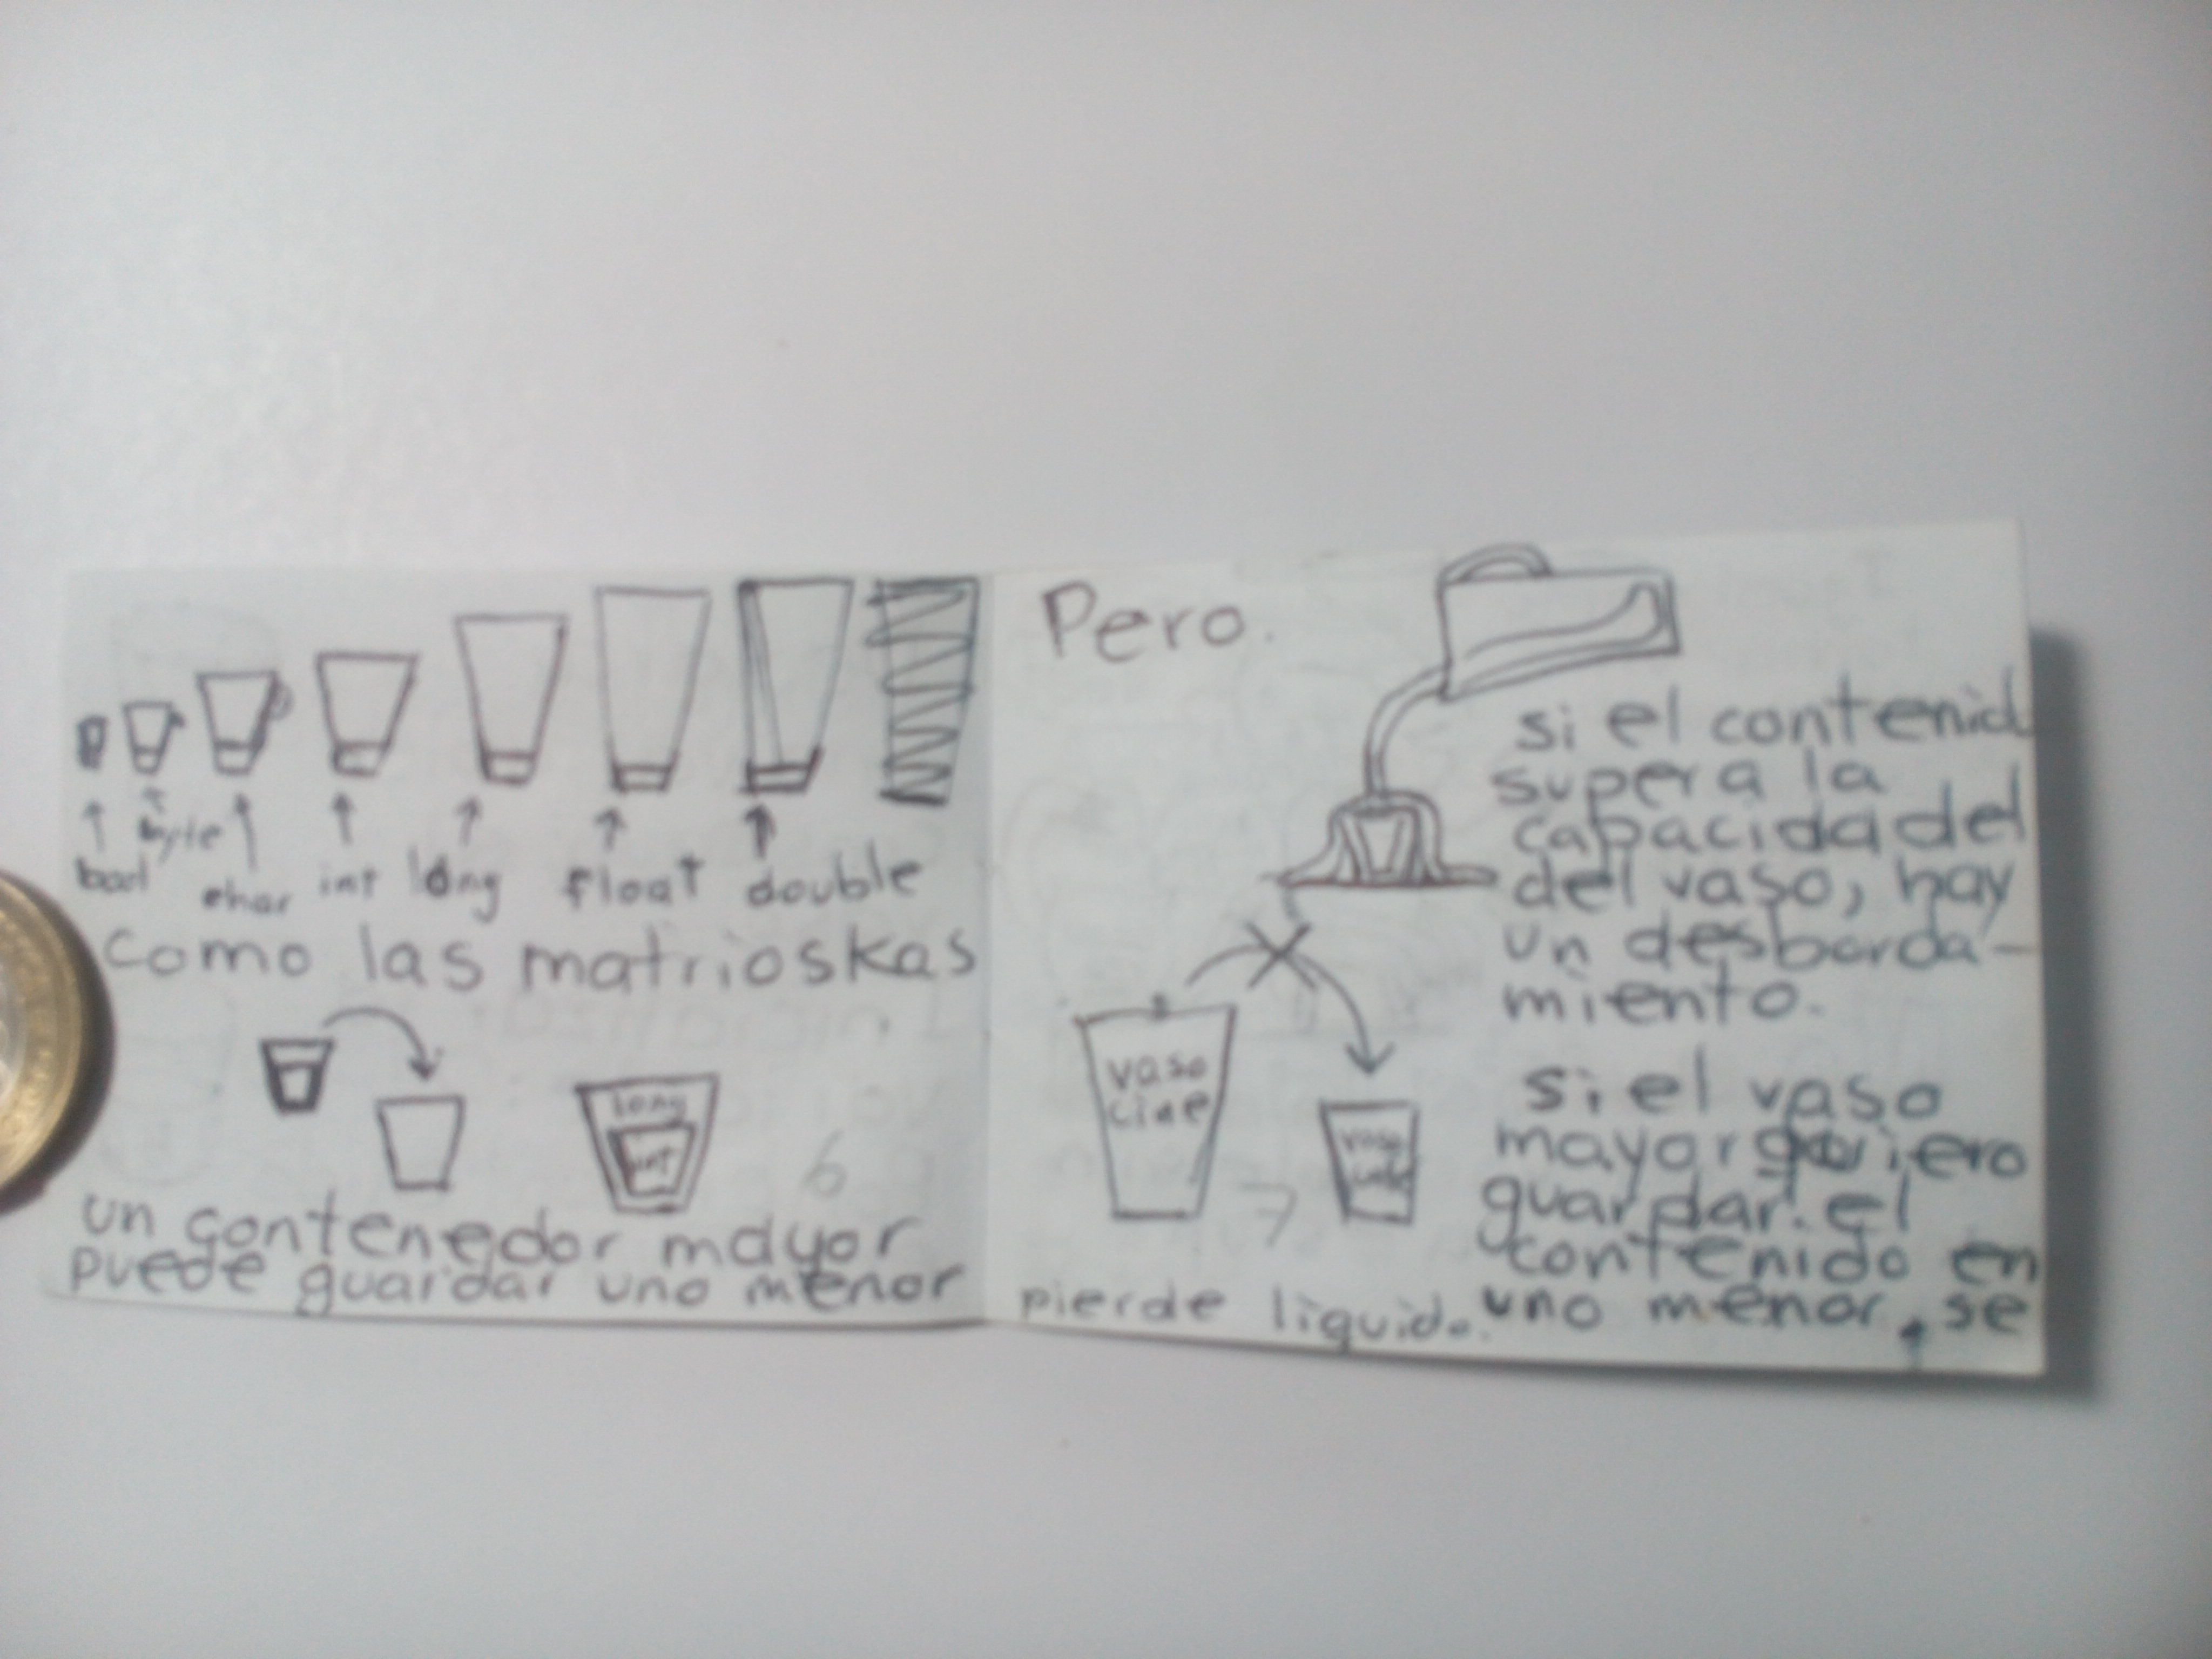 bool byte char int long float double
como las matrioskas
long
int
6
un contenedor mayor
puede guardar uno menor
Pero.
si el contenid
supera la
capacidad del
del vaso, hay
un desborda-
miento.
vaso
cine
vaso
7
si el vaso
mayor quiero
guardar el
contenido en
uno menor, se
pierde liquido.